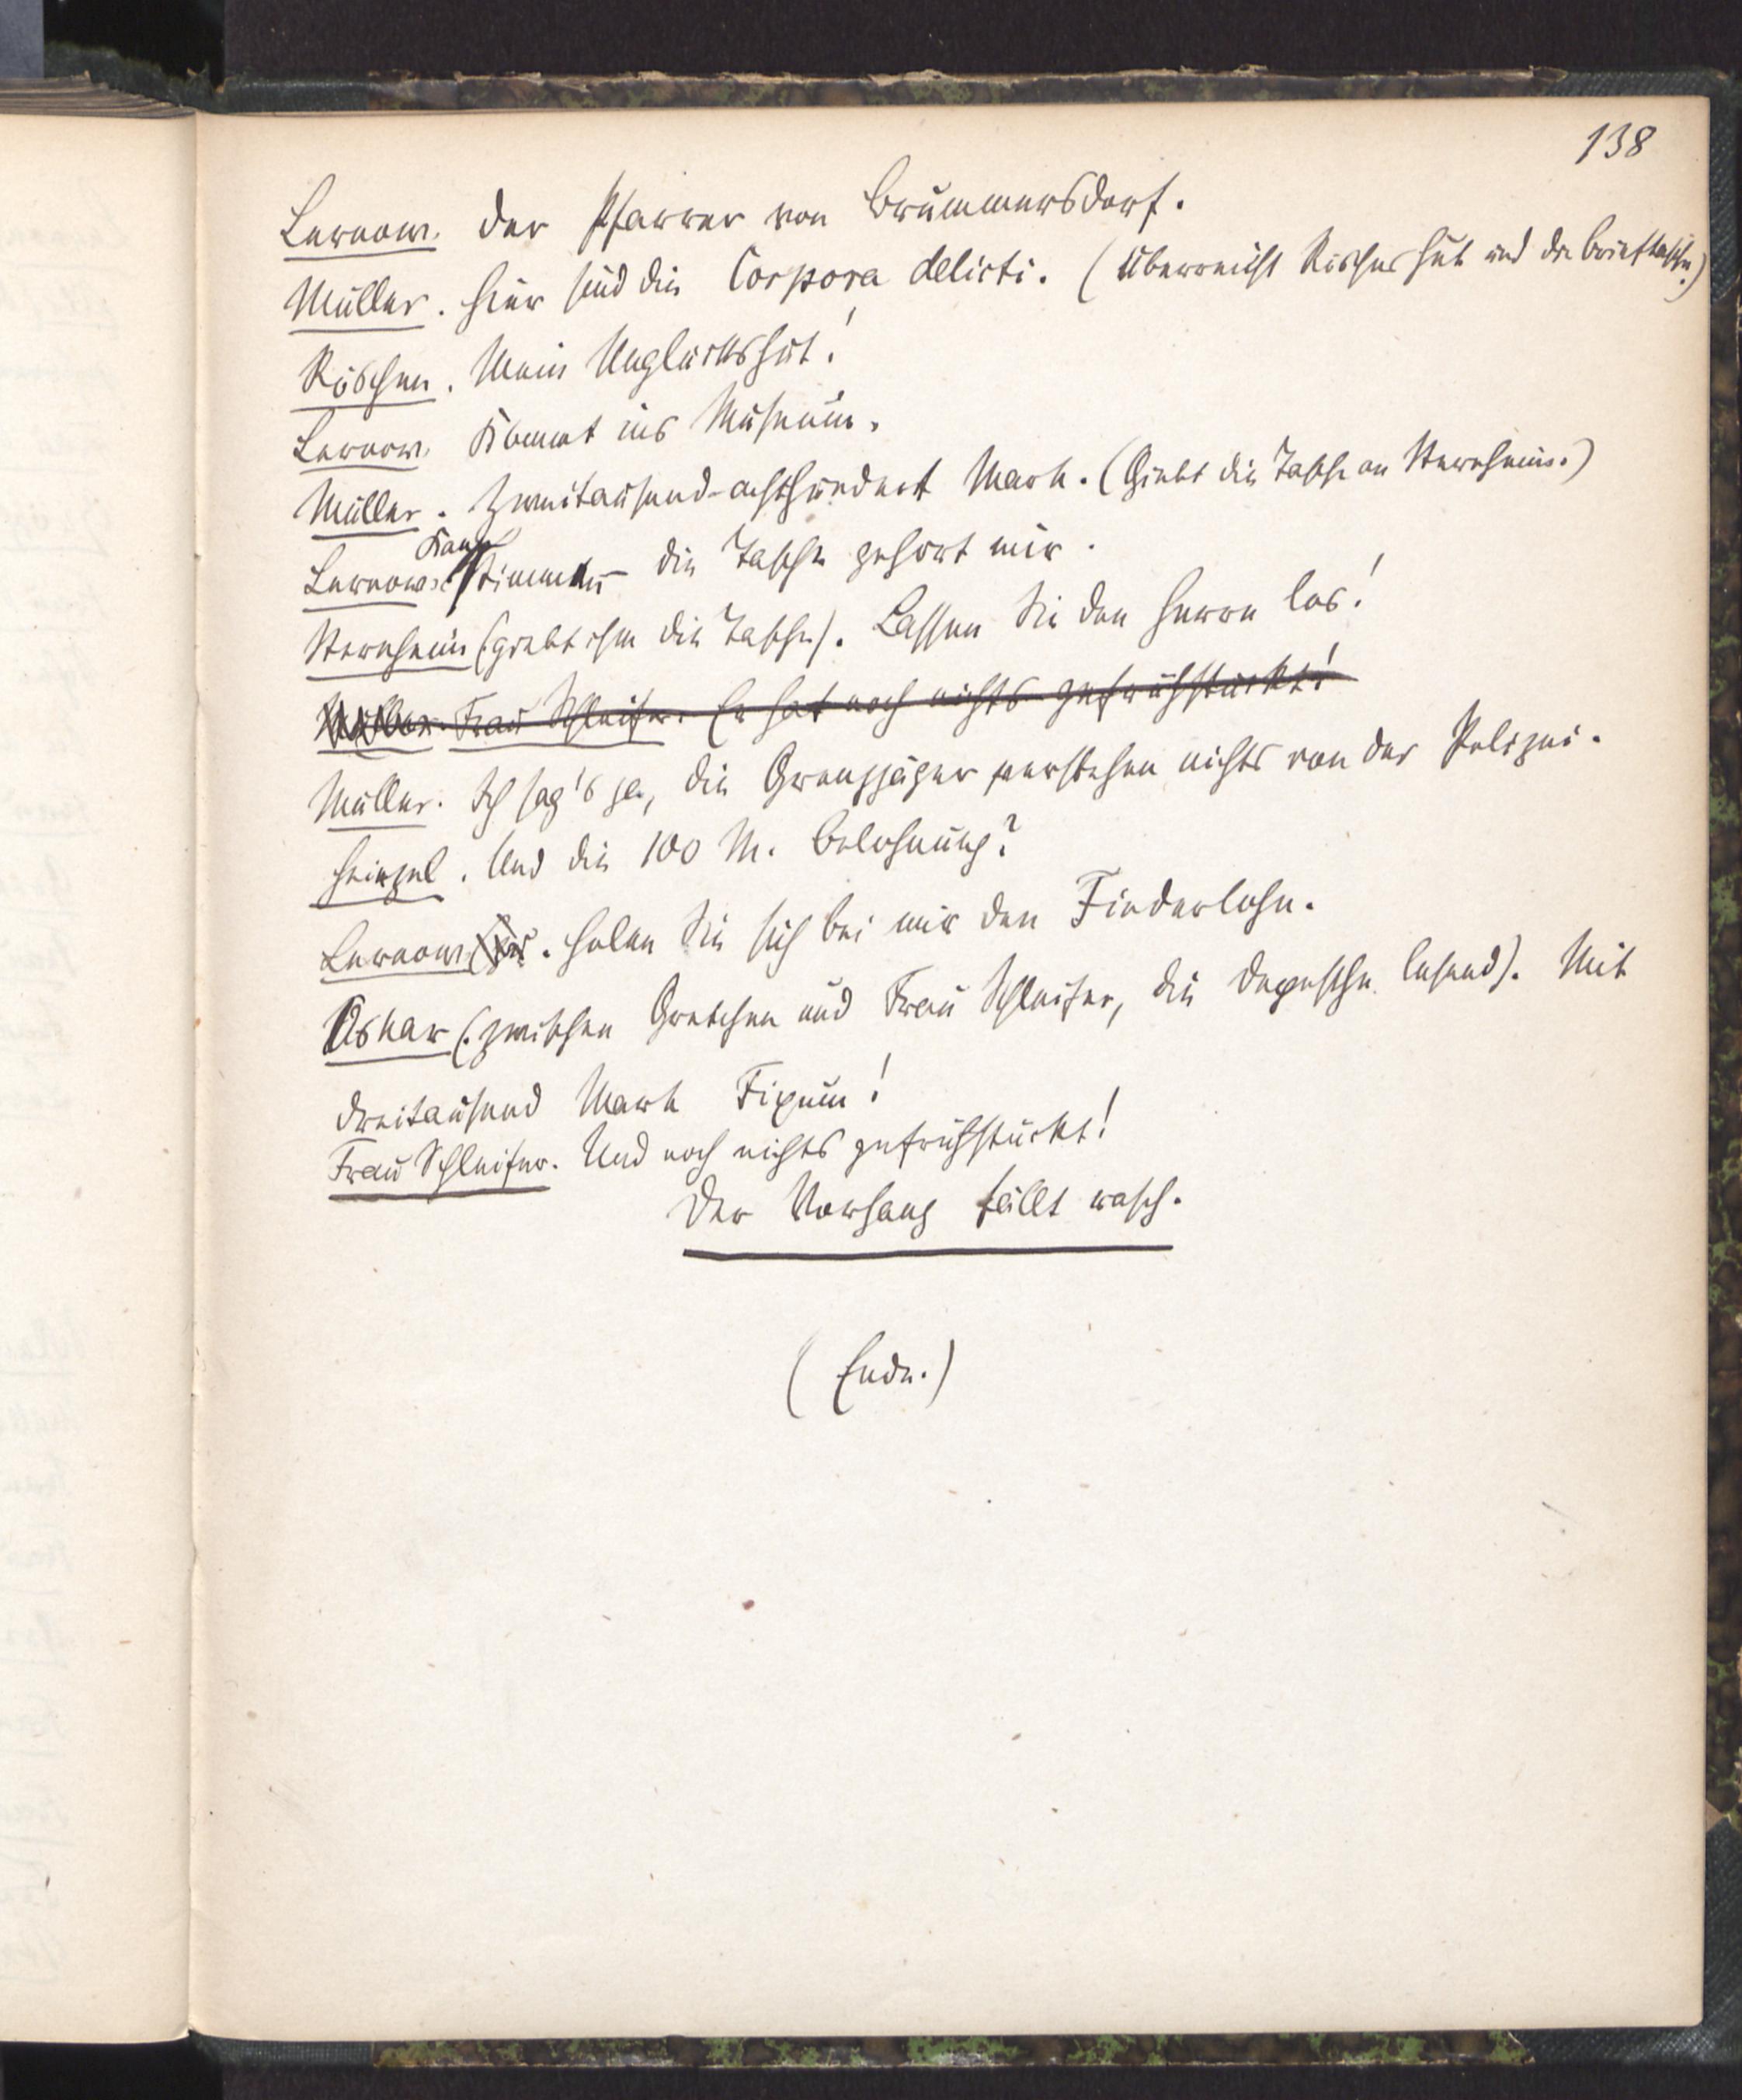 138
Lernow. Der Pfarrer von Brummersdorf.
Müller. Hier sind die Corpora delicti. (Überreicht Röschens Hut und die Brieftasche.)
Röschen. Mein Unglückshut!
Lernow. Kommt ins Museum.
Müller. Zweitausend-achthundert Mark. (Giebt die Tasche an Sternheim.)
Lernow. Stimmt – die Tasche gehört mir.
Sternheim (giebt ihm die Tasche). Lassen Sie den Herrn los!
Müller. Frau Schleifer. Er hat noch nichts gefrühstückt!
Müller. Ich sag's ja, die Grenzjäger verstehen nichts von der Polizei.
Heinzel. Und die 100 M. Belohnung?
Lernow. Holen Sie sich bei mir den Finderlohn.
Oskar (zwischen Gretchen und Frau Schleifer, die Depesche lesend). Mit
dreitausend Mark Fixum!
Frau Schleifer. Und noch nichts gefrühstückt!
Der Vorhang fällt rasch.
(Ende.)